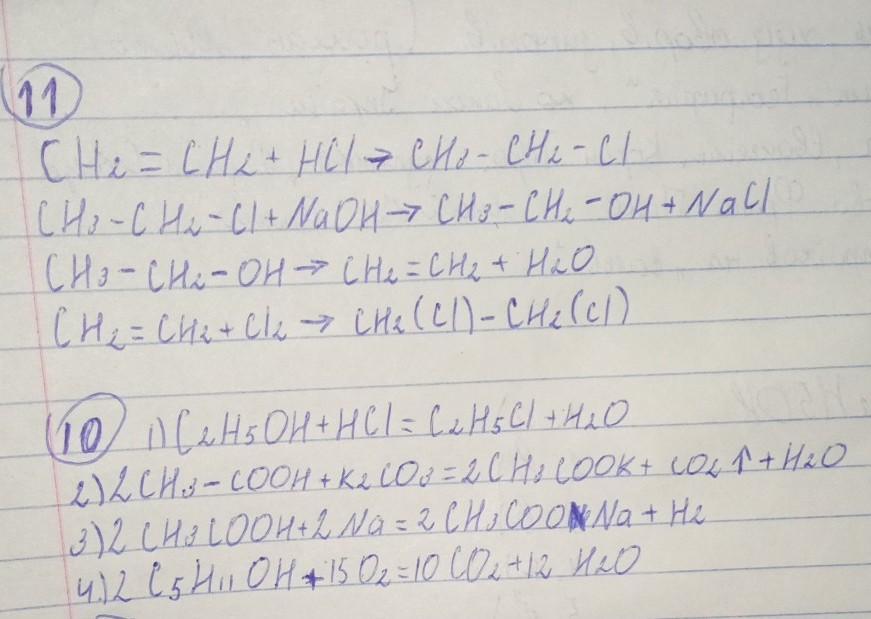 11
CH2 = CH2 + HCl → CH3 - CH2 - Cl
CH3 - CH2 - Cl + NaOH → CH3 - CH2 - OH + NaCl
CH3 - CH2 - OH → CH2 = CH2 + H2O
CH2 = CH2 + Cl2 → CH2(Cl) - CH2(Cl)
10 1) C2H5OH + HCl = C2H5Cl + H2O
2) 2CH3 - COOH + K2CO3 = 2CH3COOK + CO2↑ + H2O
3) 2CH3COOH + 2Na = 2CH3COONa + H2
4.) 2 C5H11OH + 15O2 = 10CO2 + 12 H2O